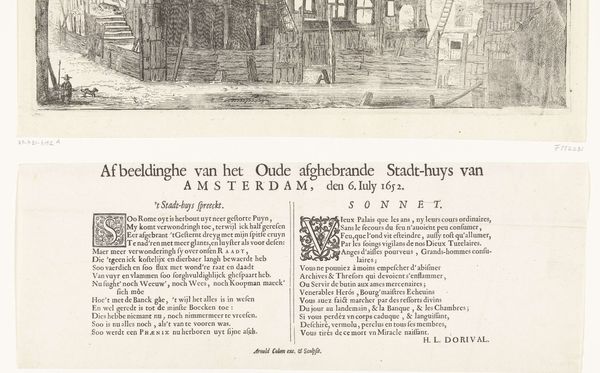 Afbeeldinghe van het Oude afghebrande Stadt-huys van
AMSTERDAM, den 6. Iuly 1652.
't Stadt-huys spreeckt.
SOo Rome oyt is herbout uyt neer gestorte Puyn,
My komt verwondringh toe, terwijl ick half geresen
Eer afgebrant 'tGesternt dreyg met mijn spitse cruyn
Te nad'ren met meer glants, en luyster als voor desen:
Maer meer verwonderingh sy over onsen RAADT,
Die 'tgeen ick kostelijx en dierbaer langh bewaerde heb
Soo vaerdich en soo flux met wond're raat en daadt
Van vuyr en vlammen soo sorghvuldighlijck ghespaert heb.
Nu sught' noch Weeuw', noch Wees, noch Koopman maeck'
sich möe
Hoe't met de Banck ghe, 't wijl het alles is in wesen
En wel geredt is tot de minste Boecken toe:
Dies hebbe niemant nu, noch nimmermeer te vreesen.
Soo is nu alles noch, als't van te vooren was.
Soo werdt een PHÆNIX nu herboren uyt sijne asch.
SONNET.
VIeux Palais que les ans, ny leurs cours ordinaires,
Sans le secours du feu n'auoient peu consumer,
Feu, que l'ond vit esteindre, aussy tost qu'allumer,
Par les soings vigilans de nos Dieux Tutelaires.
Anges d'aisses pourveus, Grands-hommes consu-
laires;
Vous ne pouuiez à moins empescher d'abismer
Archives & Thresors qui devoient s'enflammer,
Ou Servir de butin aux ames mercenaires;
Venerables Herós, Bourg'maistres Echeuins
Vous auez faict marcher par des ressorts divins
Du jour au landemain, & la Banque, & les Chambres;
Si vous perdéz vn corps caduque, & languissant,
Deschiré, vermolu, perclus en tous ses membres,
Vous tirés de ce mort vn Miracle naissant.
H. L. DORIVAL.
Arnold Colom exc. & Sculpsit.